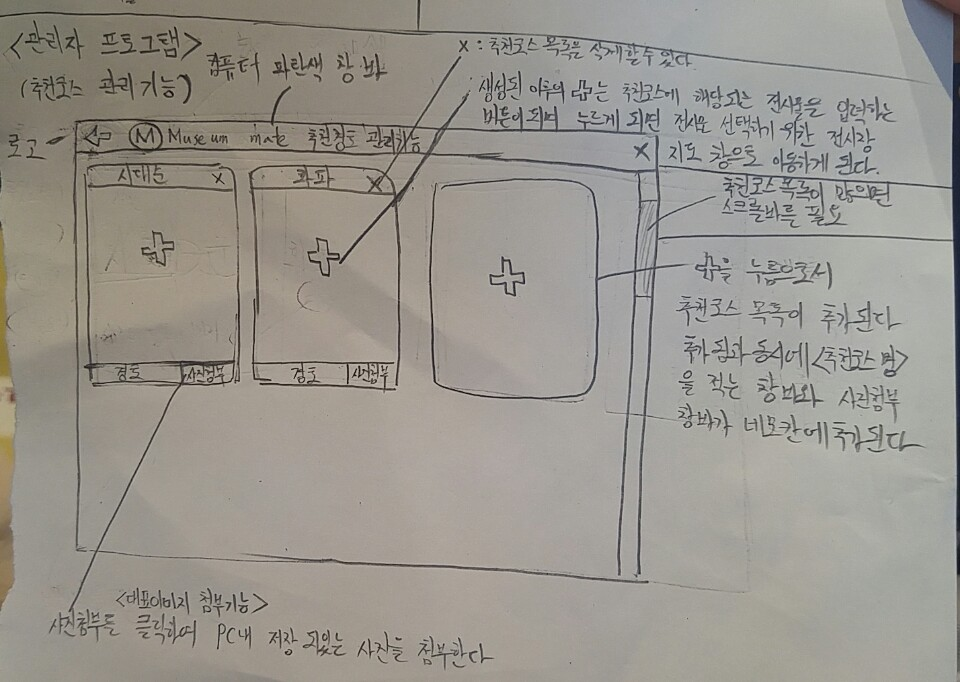 <관리자 프로그램>
(추천코스 관리기능)
컴퓨터 파란색 창 바
x : 추천코스 목록을 삭제할 수 있다.
생성된 이후의 는 추천코스에 해당되는 전시물을 입력하는
버튼이 되며 누르게 되면 전시물 선택하기 위한 전시장
지도 창으로 이동하게 된다.
로고
M Museum mate 추천경로 관리기능
X
시대순 x
화파 x
추천코스 목록이 많으면
스크롤바를 필요
을 누름으로서
추천코스 목록이 추가된다
추가됨과 동시에 <추천코스 명>
을 적는 창바와 사진첨부
창바가 네모칸에 추가된다
경로 사진첨부
경로 사진첨부
<대표이미지 첨부기능>
사진첨부를 클릭하여 PC내 저장 되있는 사진을 첨부한다